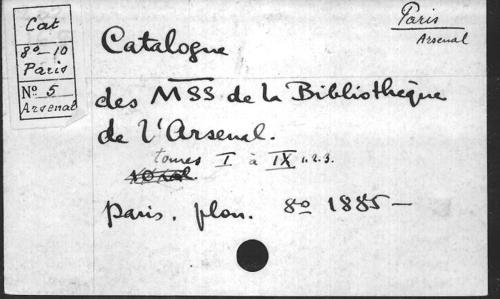 Cat
8º-10
Paris
Nº 5
Arsenal
Paris
Arsenal
Catalogue
des MSS de la Bibliothèque
de l'Arsenal.
tomes I à IX 1.2.3.
Paris. plon. 8º 1885-